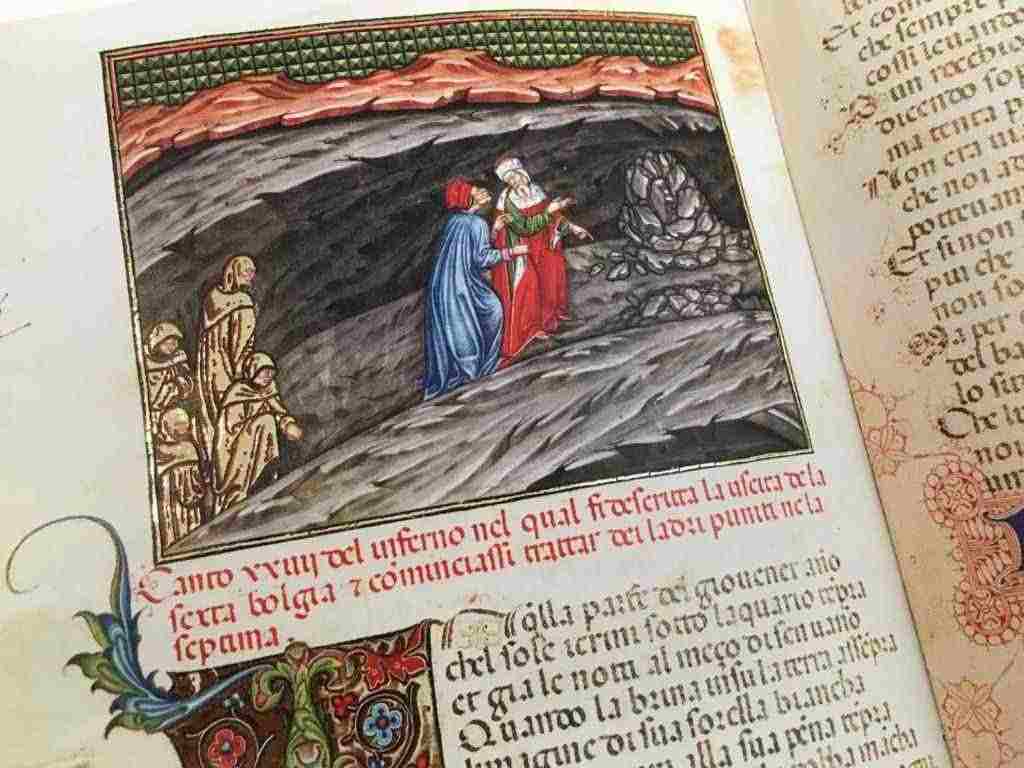 Canto xxiiij del inferno nel qual si descriue la uscita de la
sexta bolgia 7 cominciassi trattar dei ladri puniti ne la
septima.
q̃lla parte del giouenet año
chel sole i crini sotto laquario tẽpra
et gia le notti al meço di sen uano
Quando la brina ĩsu la terra assẽpra
lymagine di sua sorella biancha
alla sua pẽna tẽpra
mãcha
Et com
che sempre p
cosi leuando
un rocchio
dicendo sop
ma tenta p
Non era ui
che noi ad
potteuam
Et si non
piu che
non so
Ma per
del ba
lo sit
Che lu
noi